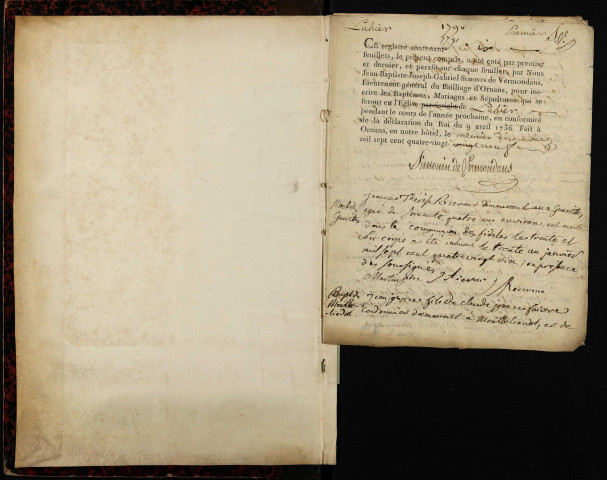 Lahier 1790 Premier
CE registre contenant dix
feuillets, le présent compris, a été coté par premier
et dernier, et paraphé sur chaque feuillet, par Nous
Jean-Baptiste-Joseph-Gabriel SIMONIN de Vermondans,
Lieutenant-général du Bailliage d'Ornans, pour ins-
crire les Baptêmes, Mariages et Sépultures qui se
feront en l'Eglise paroissiale de Lahier
pendant le cours de l'année prochaine, en conformité
de la déclaration du Roi du 9 avril 1736. Fait à
Ornans, en notre hôtel, le premier
mil sept cent quatre-vingt neuf
Simonin de Vermondans
Jeanne Therese Receveur demeurant aux
agée de soixante quatre ans environ est morte
dans la communion des fideles le trente et
son corps a été inhumé le trente un janvier
mil sept cent quatre vingt dix en presence
des soussignés
Receveur
Jean fils de claude
cordonnier demeurant à et de